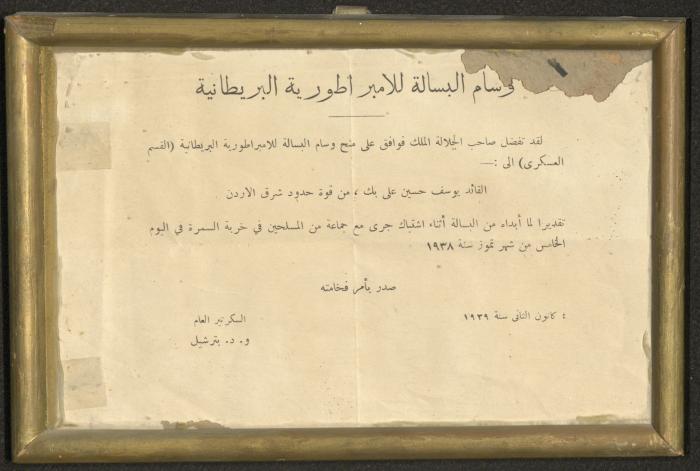 وسام البسالة للامبراطورية البريطانية
لقد تفضل صاحب الجلالة الملك فوافق على منح وسام البسالة للامبراطورية البريطانية (القسم
العسكري) الى :—
القائد يوسف حسين على بك ، من قوة حدود شرق الاردن
تقديرا لما أبداه من البسالة أثناء اشتباك جرى مع جماعة من المسلحين في خربة السمرة في اليوم
الخامس من شهر تموز سنة ١٩٣٨
صدر بأمر فخامته
٤ كانون الثانى سنة ١٩٣٩
السكرتير العام
و. د. بترشيل